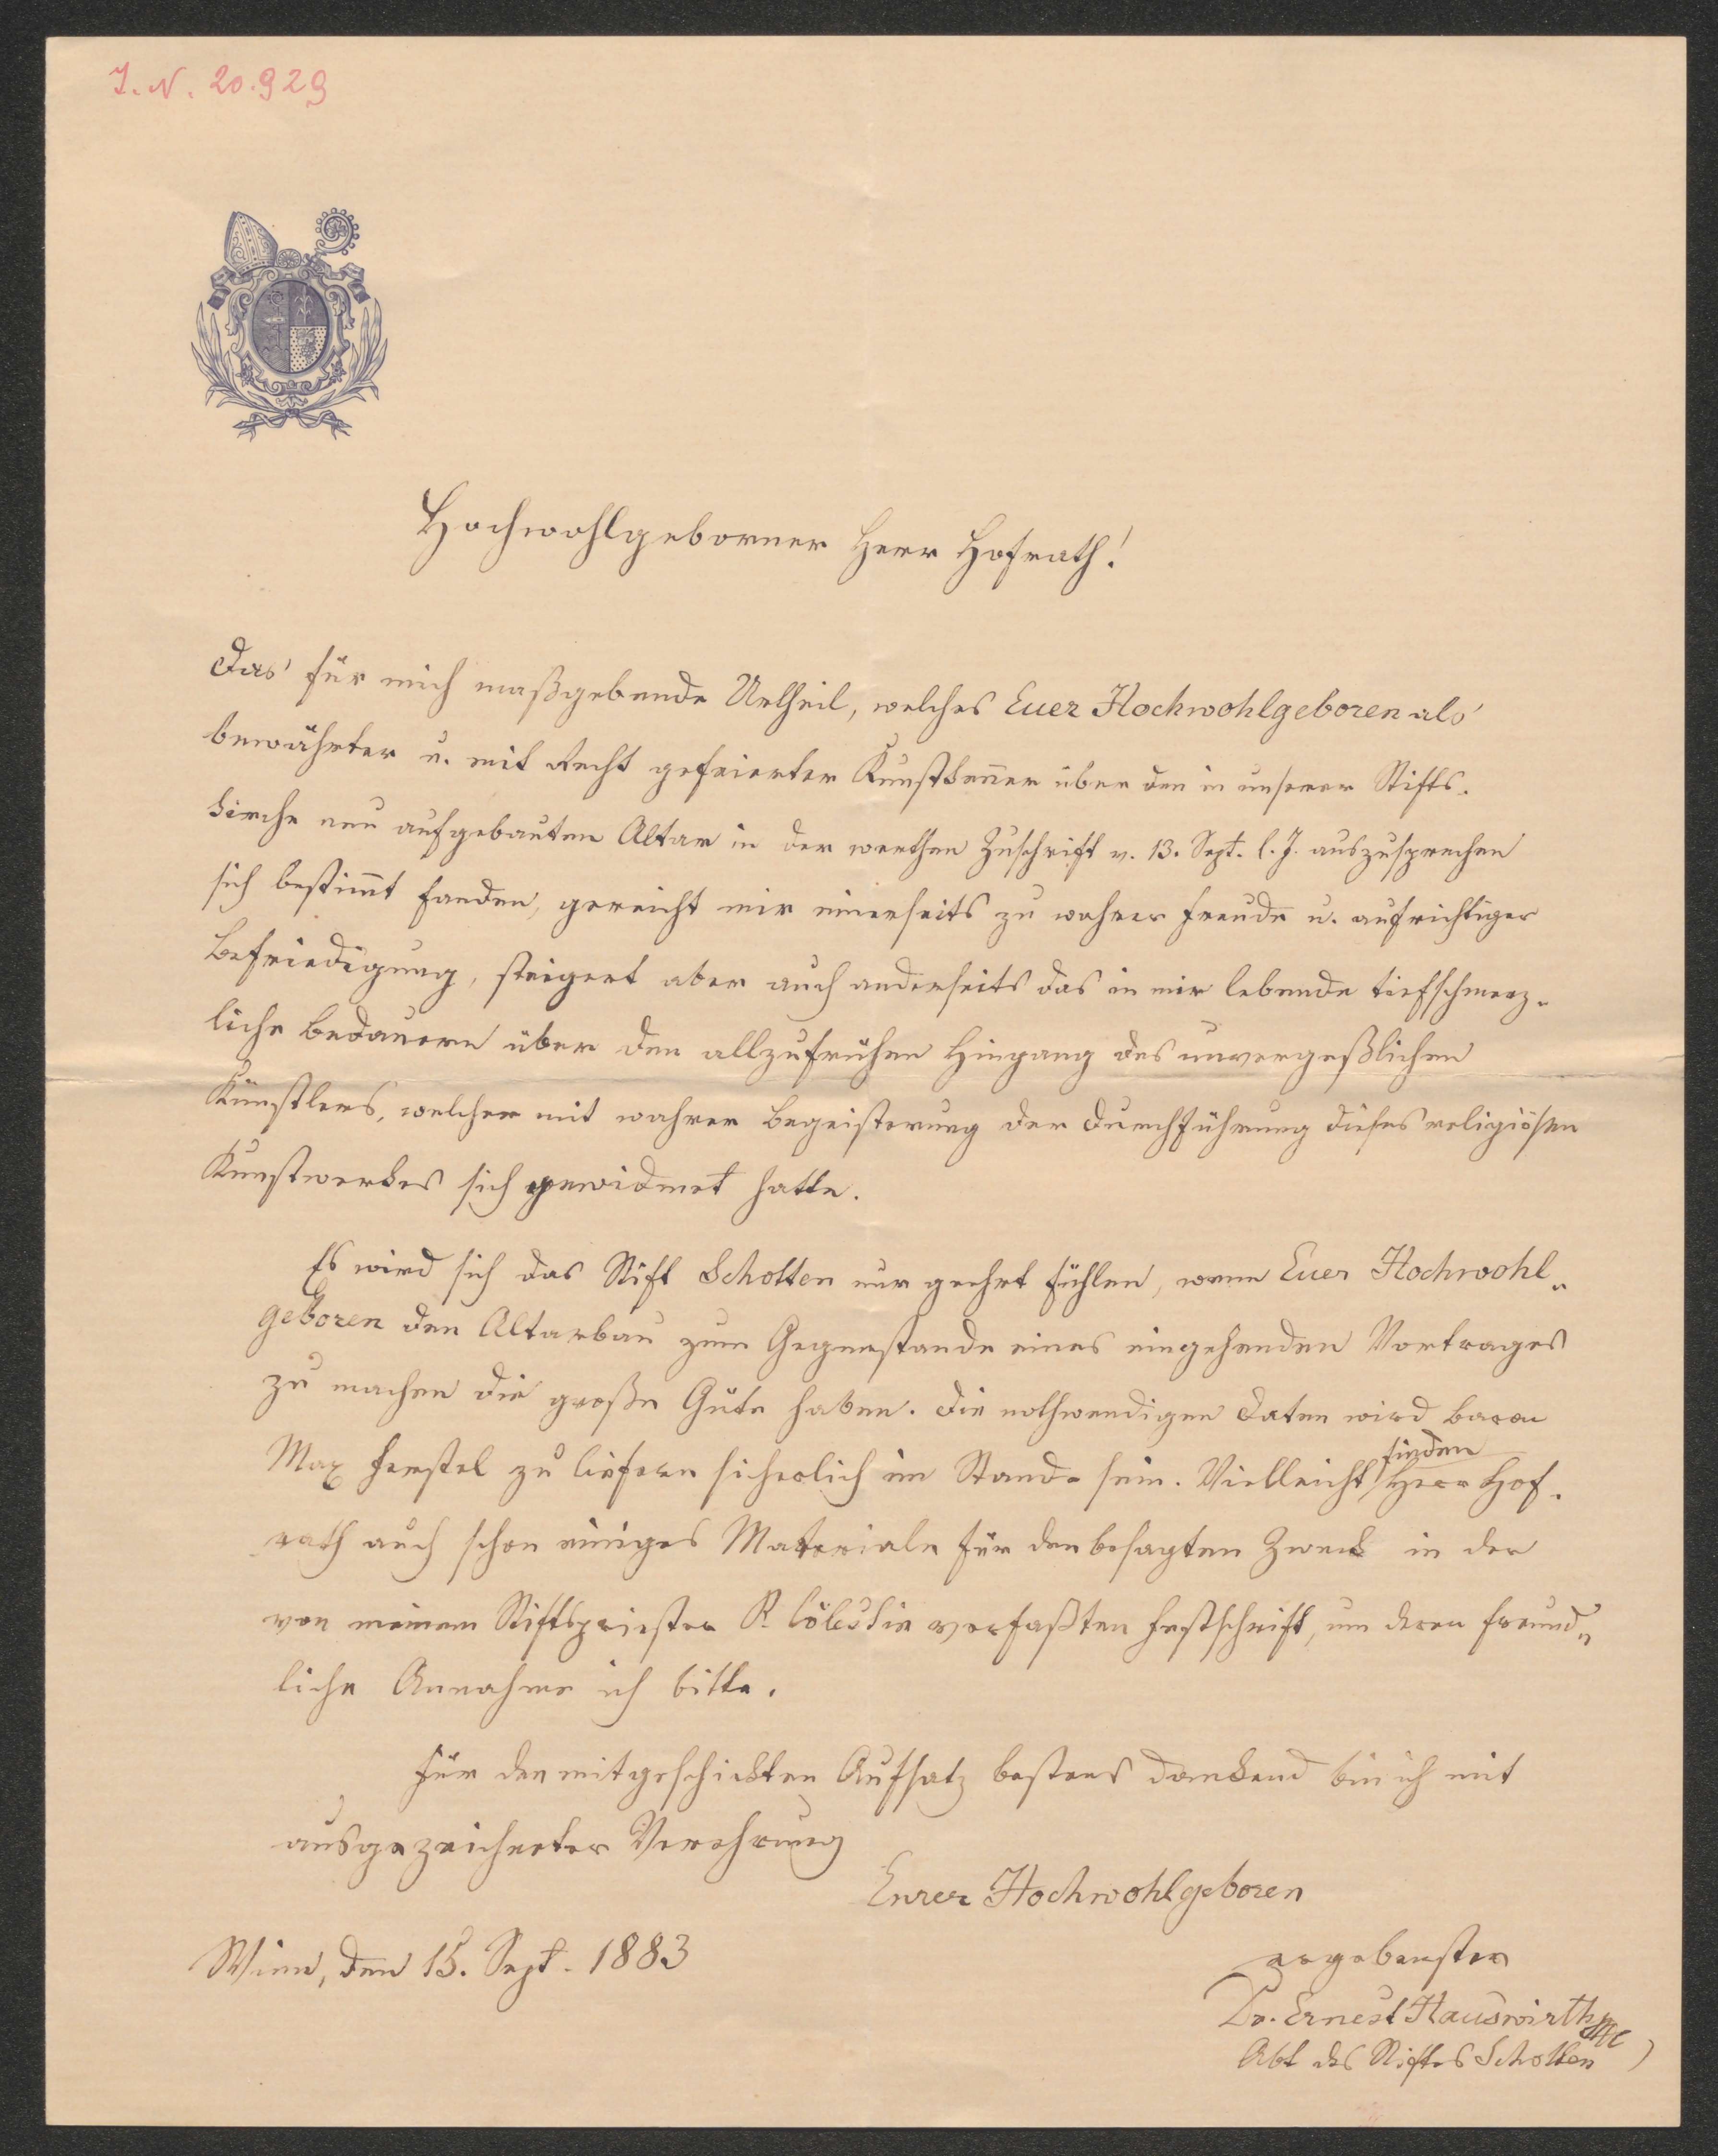 I. N. 20.929
Hochwohlgeborner Herr Hofrath!
Das für mich maßgebende Urtheil, welches Euer Hochwohlgeboren als
bewährter u. mit Recht gefeierter Kunstkenner über den in unserer Stifts-
kirche neu aufgebauten Altar in der werthen Zuschrift v. 13. Sept. l. J. auszusprechen
sich bestimmt fanden, gereicht mir einerseits zu wahrer Freude u. aufrichtiger
Befriedigung, steigert aber auch anderseits das in mir lebende tiefschmerz-
liche Bedauern über den allzufrühen Hingang des unvergeßlichen
Künstlers, welcher mit wahrer Begeisterung der Durchführung dieses religiösen
Kunstwerkes sich gewidmet hatte.
Es wird sich das Stift Schotten nur geehrt fühlen, wenn Euer Hochwohl-
geboren den Altarbau zum Gegenstande eines eingehenden Vortrages
zu machen die große Güte haben. Die nothwendigen Daten wird Baron
Max Ferstel zu liefern sicherlich im Stande sein. Vielleicht finden Herr Hof-
rath auch schon einiges Materiale für den besagten Zweck in der
von meinem Stiftspriester P. Cölestin verfaßten Festschrift, um deren freund-
liche Annahme ich bitte.
Für den mitgeschickten Aufsatz bestens dankend bin ich mit
ausgezeichneter Verehrung
Eurer Hochwohlgeboren
Wien, den 15. Sept. 1883
ergebenster
Dr. Ernest Hauswirth
Abt des Stiftes Schotten